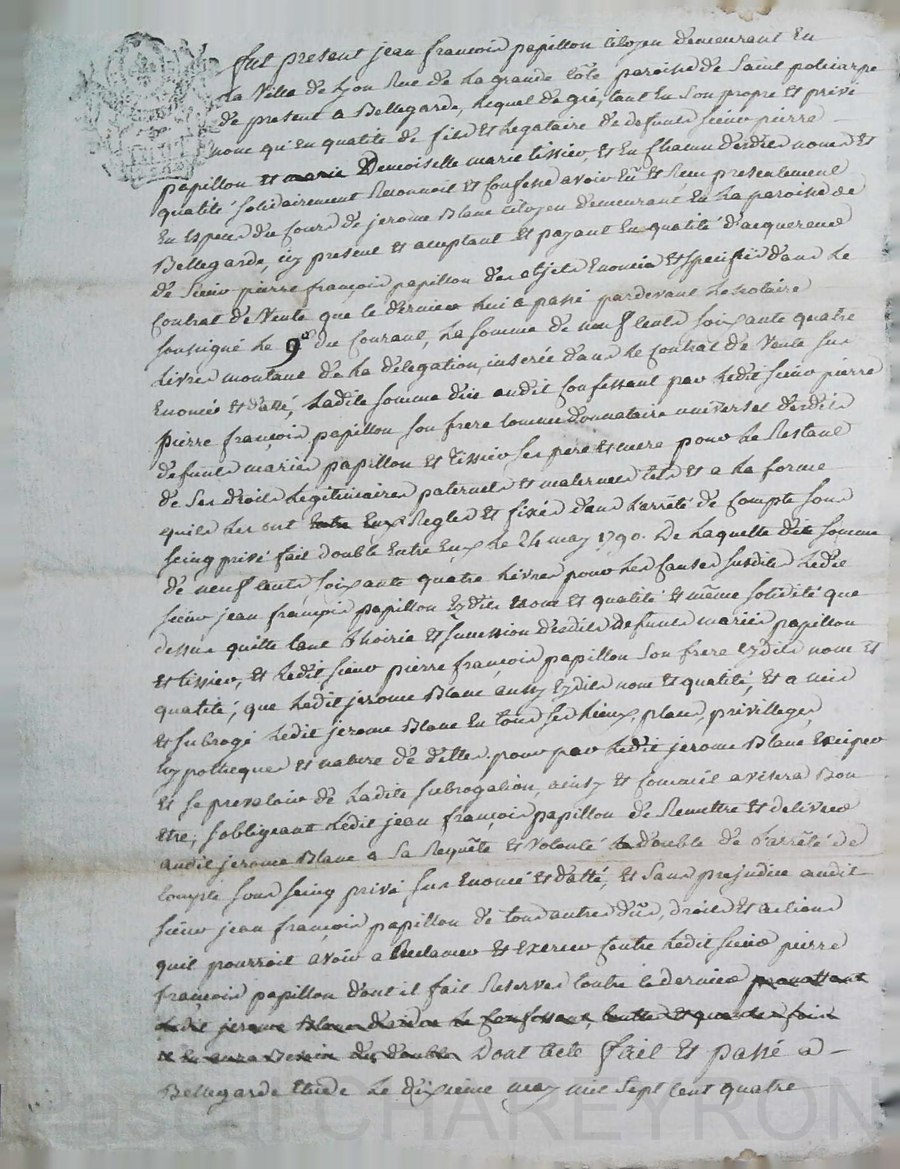 Fut present jean françois papillon citoyen demeurant En
La Ville de Lyon Rue de La grande Côte paroisse de Saint policarpe
de present a Bellegarde, Lequel de gré, tant En Son propre Et privé
nom qu'En qualité de fils Et Legataire de defunts Sieur pierre
papillon Et marie Demoiselle marie tissier, Et En Chacun desdits noms Et
qualité Solidairement Reconnoit et Confesse avoir Eu Et Reçu presentement
En Especes du Cours de jerome Blanc Citoyen demeurant En La paroisse de
Bellegarde, icy present et acceptant Et payant En qualité d'acquereur
de Sieur pierre françois papillon des objets Enoncés Et Specifiés dans Le
Contrat de Vente que ce dernier Lui a passé pardevant Le Notaire
Soussigné Le 9e du Courant, La Somme de neuf Cents Soixante quatre
Livres montant de La délégation, inserée dans Le Contrat de Vente Sus
Enoncé Et datté, Ladite Somme due audit Confessant par Ledit Sieur pierre
pierre françois papillon Son frere Comme donnataire universel desdits
defunts mariés papillon Et Tissier Ses pere Et mere pour Le Restant
de Ses droits Legitimaires paternels Et maternels tels Et a La forme
quils Les ont Entre Eux Reglés Et fixés dans L'arrêté de Compte Sous
Seing privé fait double Entre Eux Le 24 may 1790. De Laquelle dite Somme
de neuf Cents Soixante quatre Livres pour Les Causes Susdites Ledit
Sieur jean françois papillon Eydits noms Et qualité Et même Solidité que
dessus quitte tant L'hoirie Et Succession desdits Defunts mariés papillon
Et tissier, Et Ledit Sieur pierre françois papillon Son frere Eydits noms Et
qualité, que Ledit jerome Blanc aussy Eydits noms Et qualité, Et a mis
Et Subrogé Ledit jerome Blanc En tous Ses Lieux, place, privilleges
hypotheques Et nature de dettes pour par Ledit jerome Blanc Exciper
Et Se prevaloir de Ladite Subrogation, ainsy Et Comme il avisera Bon
Etre, S'obligeant Ledit jean françois papillon de Remettre Et delivrer
audit jerome Blanc a Sa Requête Et Volonté Le double de L'arrêté de
Compte Sous Seing privé Sus Enoncé Et datté, Et Sans prejudice audit
Sieur jean françois papillon de tous autres dûs, droits Et actions
quil pourroit avoir a Reclamer Et Exercer Contre Ledit Sieur pierre
françois papillon dont il fait Reserves Contre ce dernier promettant
Ledit jerome Blanc
Dont acte Fait Et passé a
Bellegarde Etude Le dixieme may mil Sept Cent quatre
Pascal CHAREYRON